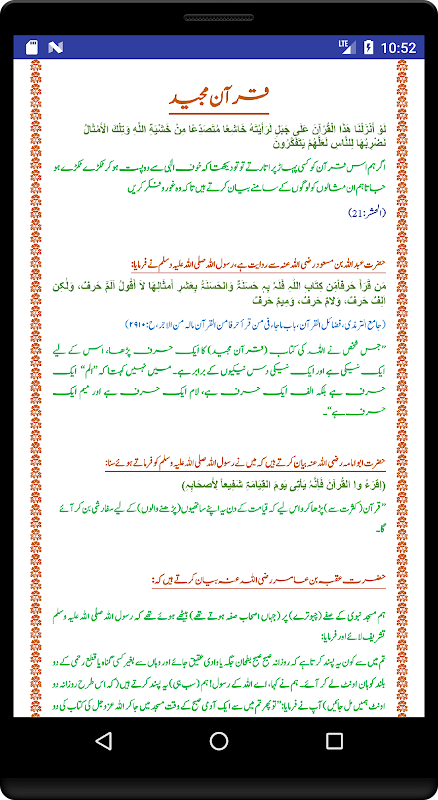 LTE 10:52
قرآن مجید
لَوْ أَنْزَلْنَا هَذَا الْقُرْآنَ عَلَى جَبَلٍ لَرَأَيْتَهُ خَاشِعًا مُتَصَدِّعًا مِنْ خَشْيَةِ اللَّهِ وَتِلْكَ الْأَمْثَالُ
نَضْرِبُهَا لِلنَّاسِ لَعَلَّهُمْ يَتَفَكَّرُونَ
اگر ہم اس قرآن کو کسی پہاڑ پر اتارتے تو تو دیکھتا کہ خوف الٰہی سے وہ پست ہو کر ٹکڑے ٹکڑے ہو
جاتا ہم ان مثالوں کو لوگوں کے سامنے بیان کرتے ہیں تاکہ وہ غور و فکر کریں
(الحشر:21)
حضرت عبداللہ بن مسعود رضی اللہ عنہ سے روایت ہے، رسول اللہ صلی اللہ علیہ وسلم نے فرمایا:
مَن قَرَأَ حَرفًا مِّن كِتَابِ اللَّهِ فَلَهُ بِهِ حَسَنَةٌ وَالحَسَنَةُ بِعَشرِ أَمثَالِهَا لَا أَقُولُ الَمّ حَرفٌ، وَلٰكِن
اَلِفٌ حَرفٌ، وَلَامٌ حَرفٌ، وَمِيمٌ حَرفٌ
(جامع الترمذی، فضائل القرآن، باب ماجاء فی من قرأ حرفا من القرآن مالہ من الاجر، ح: ۲۹۱۰)
”جس شخص نے اللہ کی کتاب (قرآن مجید) کا ایک حرف پڑھا، اس کے لیے
ایک نیکی ہے اور ایک نیکی دس نیکیوں کے برابر ہے۔ میں نہیں کہتا کہ ”الم“ ایک
حرف ہے بلکہ الف ایک حرف ہے، لام ایک حرف ہے اور میم ایک
حرف ہے“۔
حضرت ابو امامہ رضی اللہ عنہ بیان کرتے ہیں کہ میں نے رسول اللہ صلی اللہ علیہ وسلم کو فرماتے ہوئے سنا:
(اِقرَءُ وا القُرآنَ فَاِنَّهُ يَأتِى يَومَ القِيَامَةِ شَفِيعاً لِأصحَابِهِ)
”قرآن (کثرت سے) پڑھا کرو اس لیے کہ قیامت کے دن یہ اپنے ساتھیوں (پڑھنے والوں) کے لیے سفارشی بن کر آئے
گا۔
حضرت عقبہ بن عامر رضی اللہ عنہ بیان کرتے ہیں کہ:
ہم مسجد نبوی کے صفے (چبوترے) پر (جہاں اصحاب صفہ ہوتے تھے) بیٹھے ہوئے تھے کہ رسول اللہ صلی اللہ علیہ وسلم
تشریف لائے اور فرمایا:
تم میں سے کون یہ پسند کرتا ہے کہ روزانہ صبح صبح بطحان جگہ یا وادی عقیق جائے اور وہاں سے بغیر کسی گناہ یا قطع رحمی کے دو
بلند کوہان اونٹ لے کر آئے۔ ہم نے کہا، اے اللہ کے رسول! ہم (سب ہی) یہ پسند کرتے ہیں (کہ اس طرح روزانہ دو
اونٹ ہمیں مل جائیں) آپ نے فرمایا: ”تو پھر تم میں سے ایک آدمی صبح کے وقت مسجد میں جا کر اللہ عزوجل کی کتاب کی دو